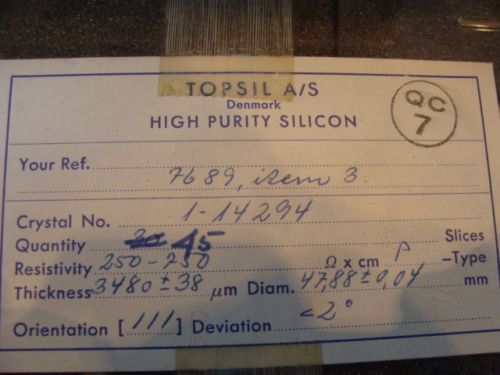 TOPSIL A/S
Denmark
HIGH PURITY SILICON
QC
7
Your Ref. 7689, item 3.
Crystal No. 1-14294
Quantity 30 45 Slices
Resistivity 250-750 Ω x cm P -Type
Thickness 3480 ± 38 μm Diam. 47,88 ± 0,04 mm
Orientation [111] Deviation <2°